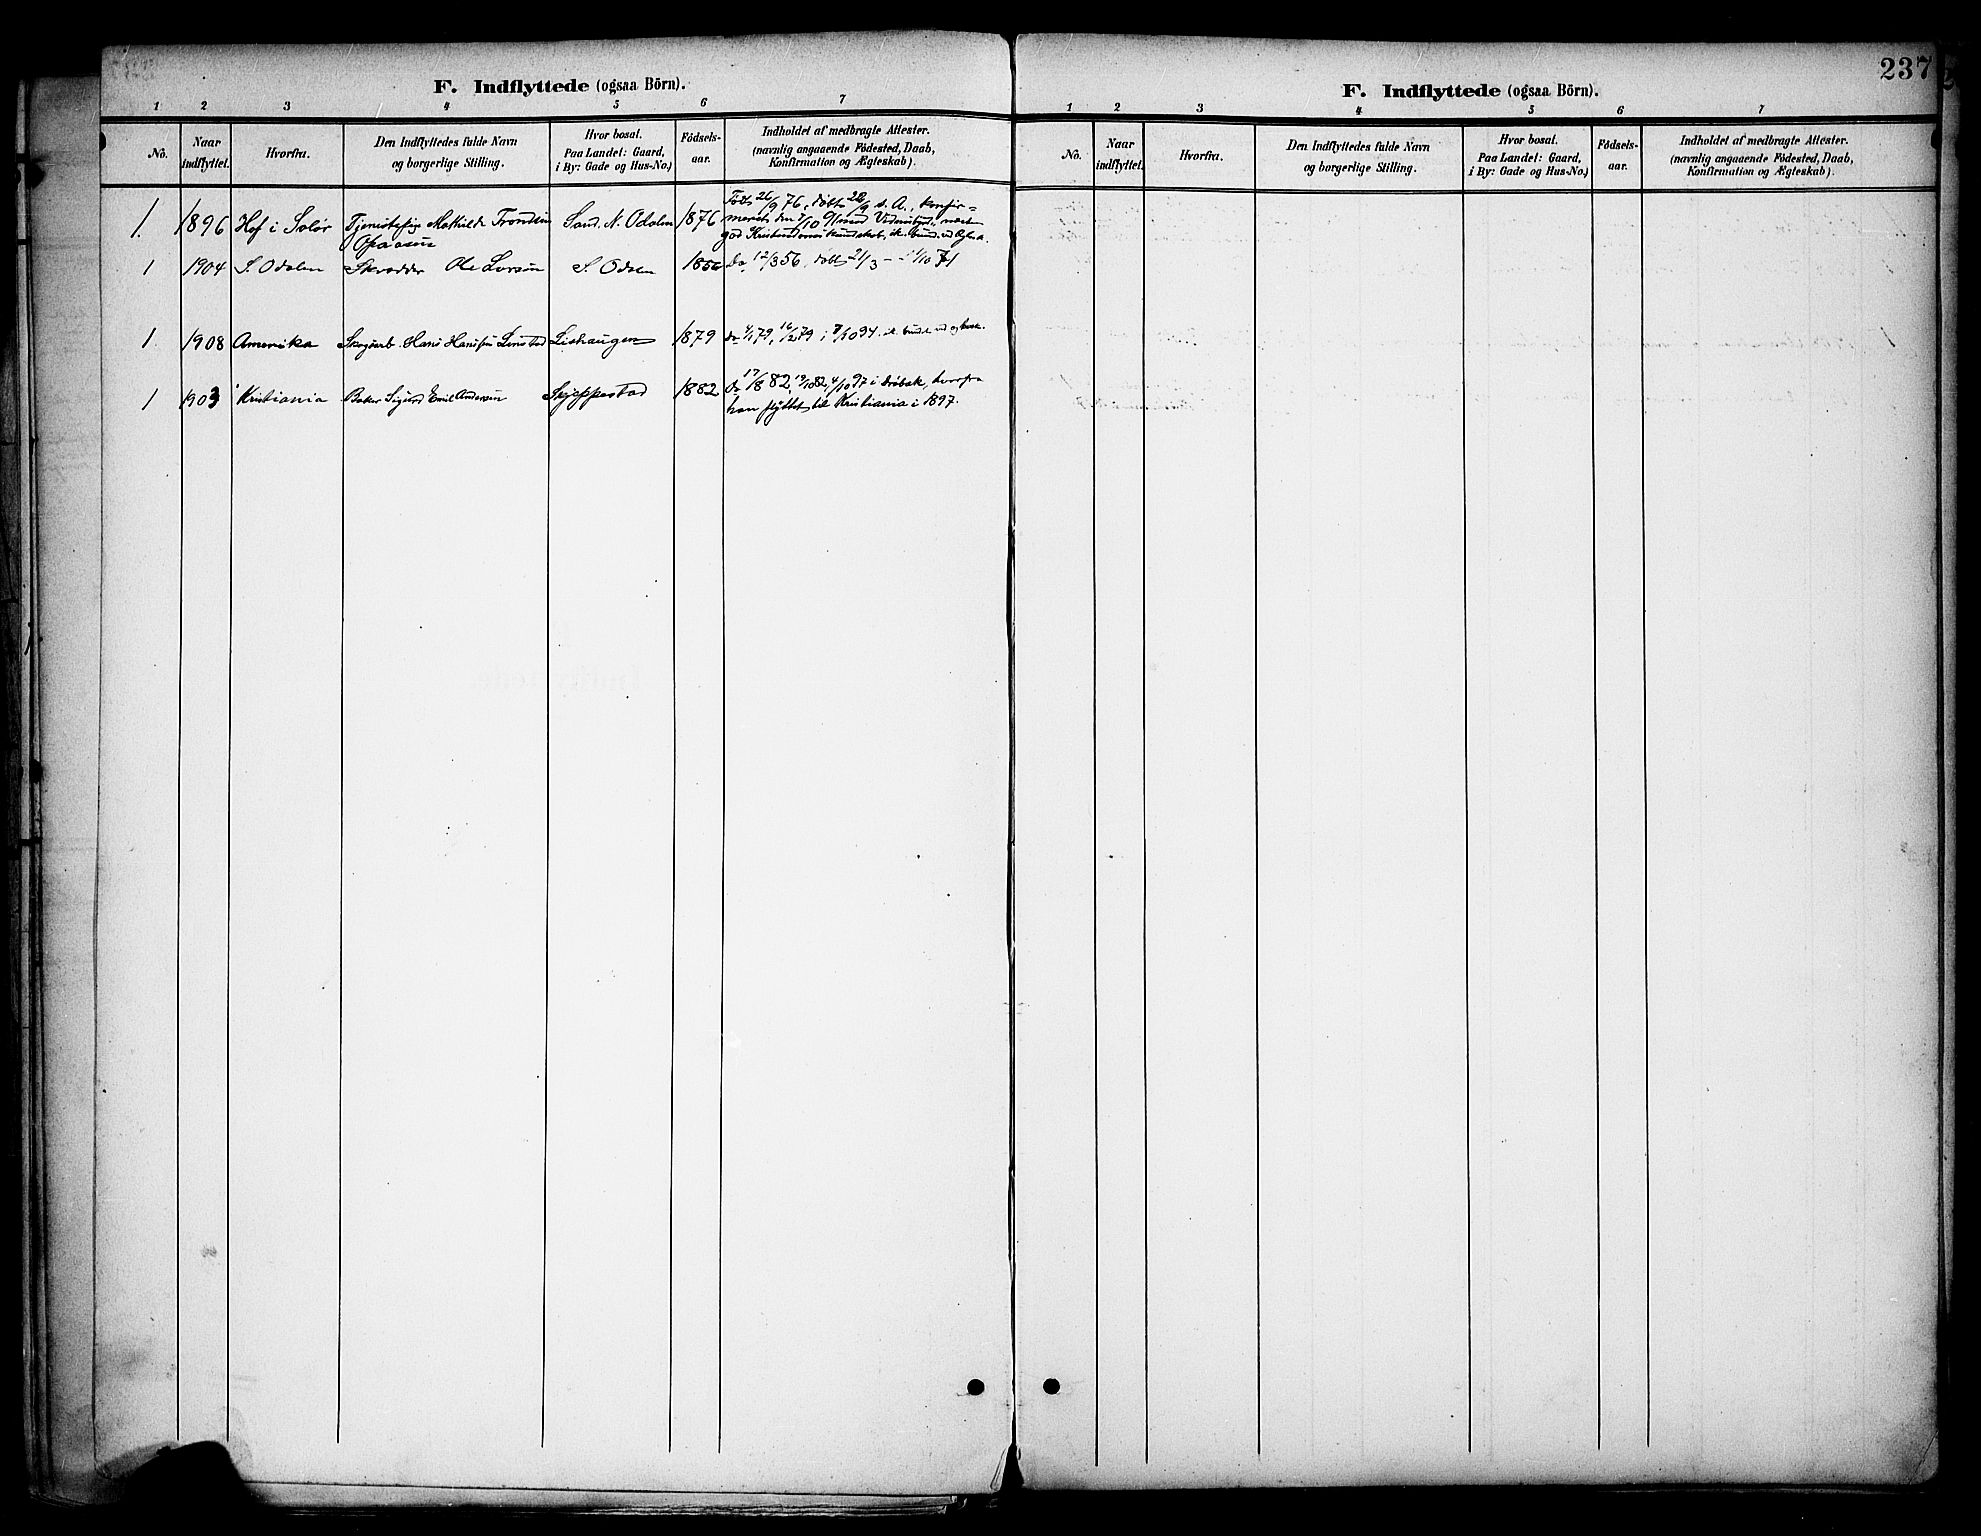 F. Indflyttede (ogsaa Börn).
1 2 3 4 5 6 7
No. Naar indflyttet. Hvorfra. Den Indflyttedes fulde Navn og borgerlige Stilling. Hvor bosat. Paa Landet: Gaard, i By: Gade og Hus-No.) Födsels-aar. Indholdet af medbragte Attester. (navnlig angaaende Födested, Daab, Konfirmation og Ægteskab).
1. 1896 Hof i Solör Mathilde Sand. N. Odalen 1876 Födt 26/9 76, döbt s. A., konfir-
meret den
god Kristendomskundskab, ik. bund. ved
1 1904 S. Odalen Skrædder Ole Larsen S. Odalen 1856 do 12/3 56, döbt 21/3 – 1/10 71
1. 1908 Amerika Skogarb. Hans Hansen 1879 do 4/1 79, 16/2 79, i
1 1903 Kristiania Baker Sigurd Emil Andersen Skjeppestad 1882 do 17/8 82, 4/10 97 i Dröbak, hvorfra
han flyttet til Kristiania i 1897.
237
F. Indflyttede (ogsaa Börn).
1 2 3 4 5 6 7
No. Naar indflyttet. Hvorfra. Den Indflyttedes fulde Navn og borgerlige Stilling. Hvor bosat. Paa Landet: Gaard, i By: Gade og Hus-No.) Födsels-aar. Indholdet af medbragte Attester. (navnlig angaaende Födested, Daab, Konfirmation og Ægteskab).